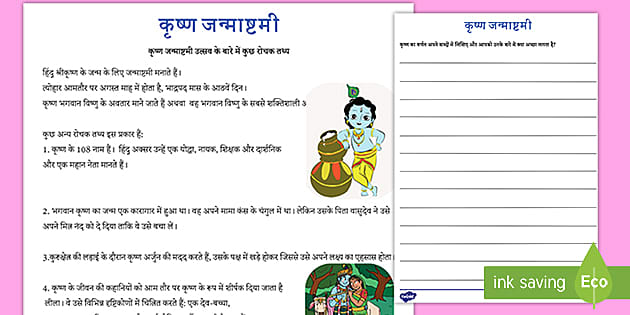 कृष्ण जन्माष्टमी
कृष्ण जन्माष्टमी उत्सव के बारे में कुछ रोचक तथ्य
हिंदु श्रीकृष्ण के जन्म के लिए जन्माष्टमी मनाते हैं।
त्योहार आमतौर पर अगस्त माह में होता है, भाद्रपद मास के आठवें दिन।
कृष्ण भगवान विष्णु के अवतार माने जाते हैं अथवा वह भगवान विष्णु के सबसे शक्तिशाली
कुछ अन्य रोचक तथ्य इस प्रकार हैं:
1. कृष्ण के 108 नाम हैं। हिंदु अक्सर उन्हें एक योद्धा, नायक, शिक्षक और दार्शनिक
और एक महान नेता मानते हैं।
2. भगवान कृष्ण का जन्म एक कारागार में हुआ था। वह अपने मामा कंस के चंगुल में था। लेकिन उसके पिता वासुदेव ने उसे
अपने मित्र नद को दे दिया ताकि वे उसे बचा लें।
3.कुरुक्षेत्र की लड़ाई के दौरान कृष्ण अर्जुन की मदद करते हैं, उसके पक्ष में खड़े होकर जिससे उसे अपने लक्ष्य का एहसास होता।
4. कृष्ण के जीवन की कहानियों को आम तौर पर कृष्ण के रूप में शीर्षक दिया जाता है
लीला। वे उसे विभिन्न दृष्टिकोणों में चित्रित करते हैं: एक देव-बच्चा,
कृष्ण जन्माष्टमी
कृष्ण का वर्णन अपने शब्दों में लिखिए और आपको उनके बारे में क्या अच्छा लगता है?
twinkl
ink saving
Eco